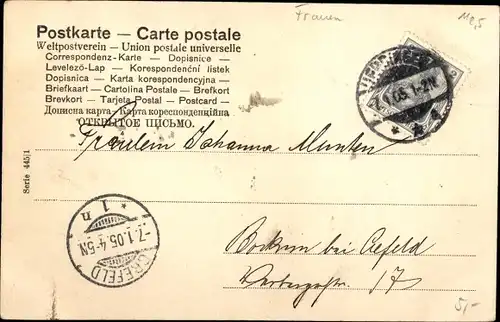 Frauen
Postkarte — Carte postale
Weltpostverein — Union postale universelle
Correspondenz-Karte — Dopisnice —
Levelező-Lap — Korespondenční listek
Dopisnica — Karta korespondencyjna —
Briefkaart — Cartolina Postale — Brefkort
Brevkort — Tarjeta Postal — Postcard —
Дописна карта — Карта кореспонденційна
ОТКРЫТОЕ ПИСЬМО.
7.1.05.1-2N
Fräulein Johanna Munten
Serie 445/1
Bockum bei Crefeld
17
CREFELD
-7.1.05.4-5N
* 1 n
5,-